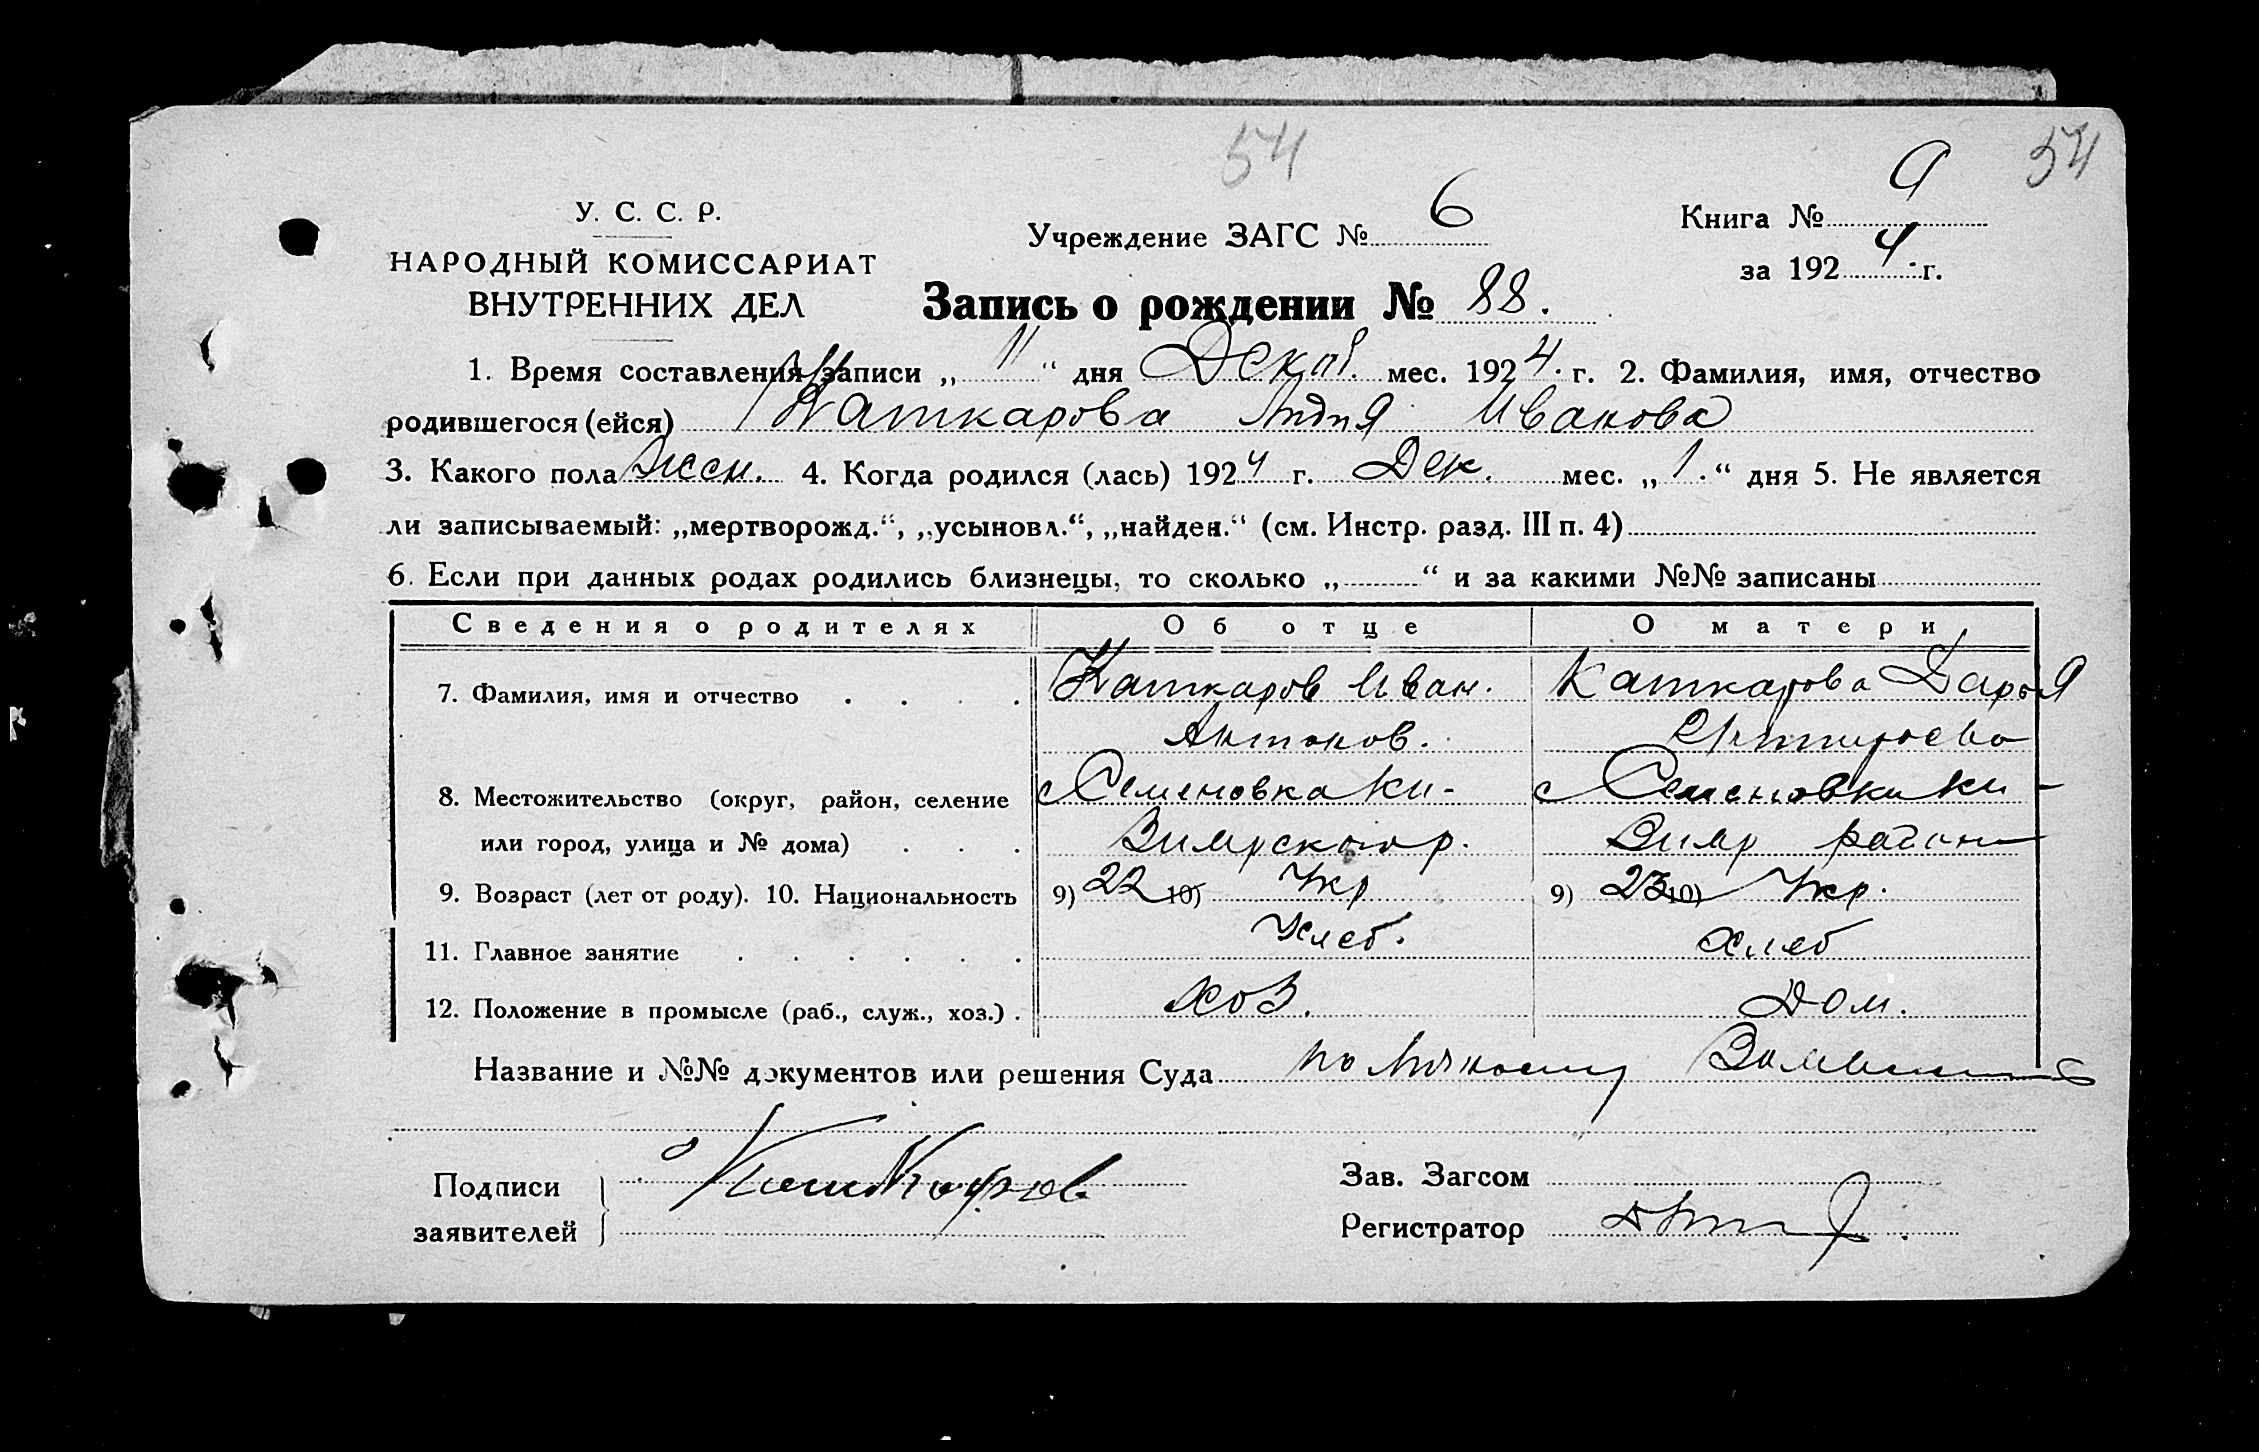 54
54
У. С. С. Р.
НАРОДНЫЙ КОМИССАРИАТ
ВНУТРЕННИХ ДЕЛ
Учреждение ЗАГС № 6
Книга № 9
за 1924 г.
Запись о рождении № 88.
1. Время составления записи „11“ дня Декаб. мес. 1924. г. 2. Фамилия, имя, отчество
родившегося (ейся) Каткарова Лидия Иванова
3. Какого пола жен. 4. Когда родился (лась) 1924 г. Дек. мес. „1.“ дня 5. Не является
ли записываемый: „мертворожд.“, „усыновл.“, „найден.“ (см. Инстр. разд. III п. 4)
6. Если при данных родах родились близнецы, то сколько „ “ и за какими №№ записаны
Сведения о родителях Об отце О матери
7. Фамилия, имя и отчество Каткаров Иван. Каткарова Дарья
Антонов.
8. Местожительство (округ, район, селение с Семеновка Ки- с Семеновка Ки-
или город, улица и № дома) р. район
9. Возраст (лет от роду). 10. Национальность 9) 22 10) Укр 9) 23 10) Укр.
11. Главное занятие Хлеб. Хлеб
12. Положение в промысле (раб., служ., хоз.) Хоз. Дом.
Название и №№ документов или решения Суда по личному
Подписи
заявителей Каткаров
Зав. Загсом
Регистратор